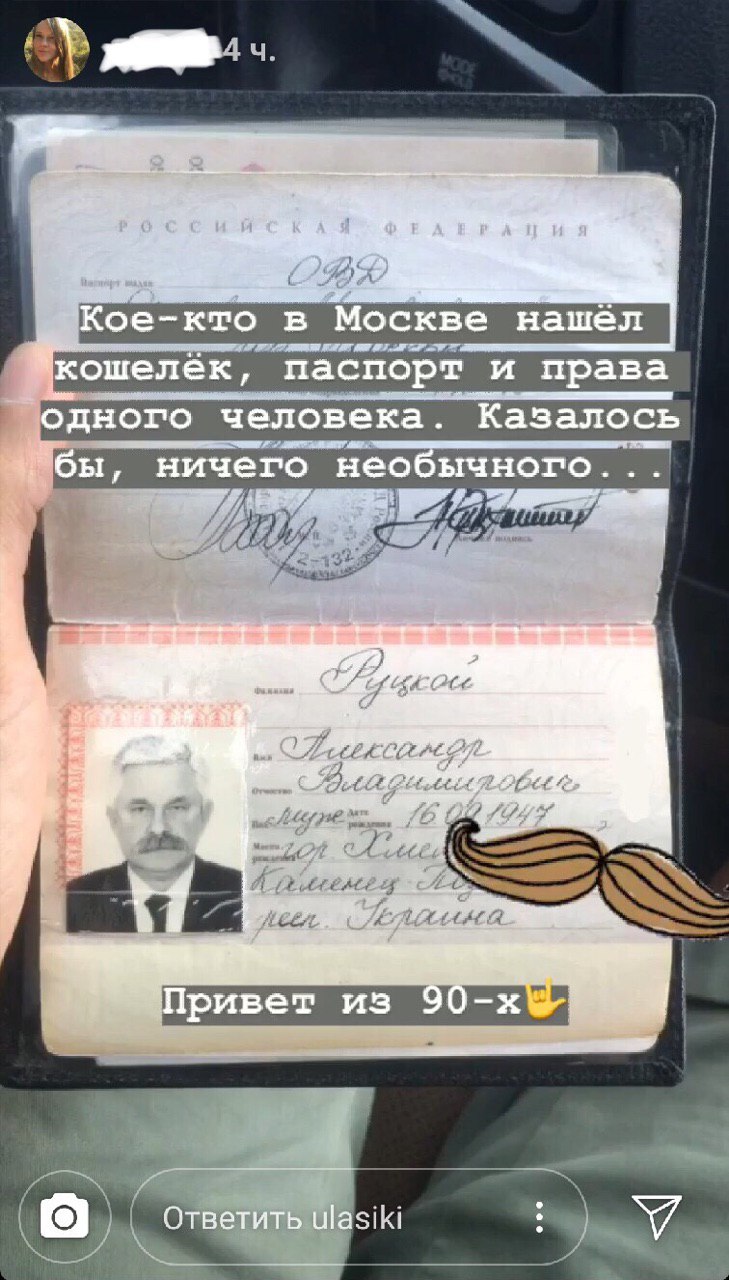 4 ч.
MODE
РОССИЙСКАЯ ФЕДЕРАЦИЯ
Паспорт выдан
ОВД
Кое-кто в Москве нашёл
кошелёк, паспорт и права
одного человека. Казалось
бы, ничего необычного...
2-132
личная подпись
Фамилия Руцкой
Имя Александр
Отчество Владимирович
Пол муж Дата рождения 16.09.1947
Место рождения гор. Хме
Каменец По
респ. Украина
Привет из 90-х🤟
Ответить ulasiki